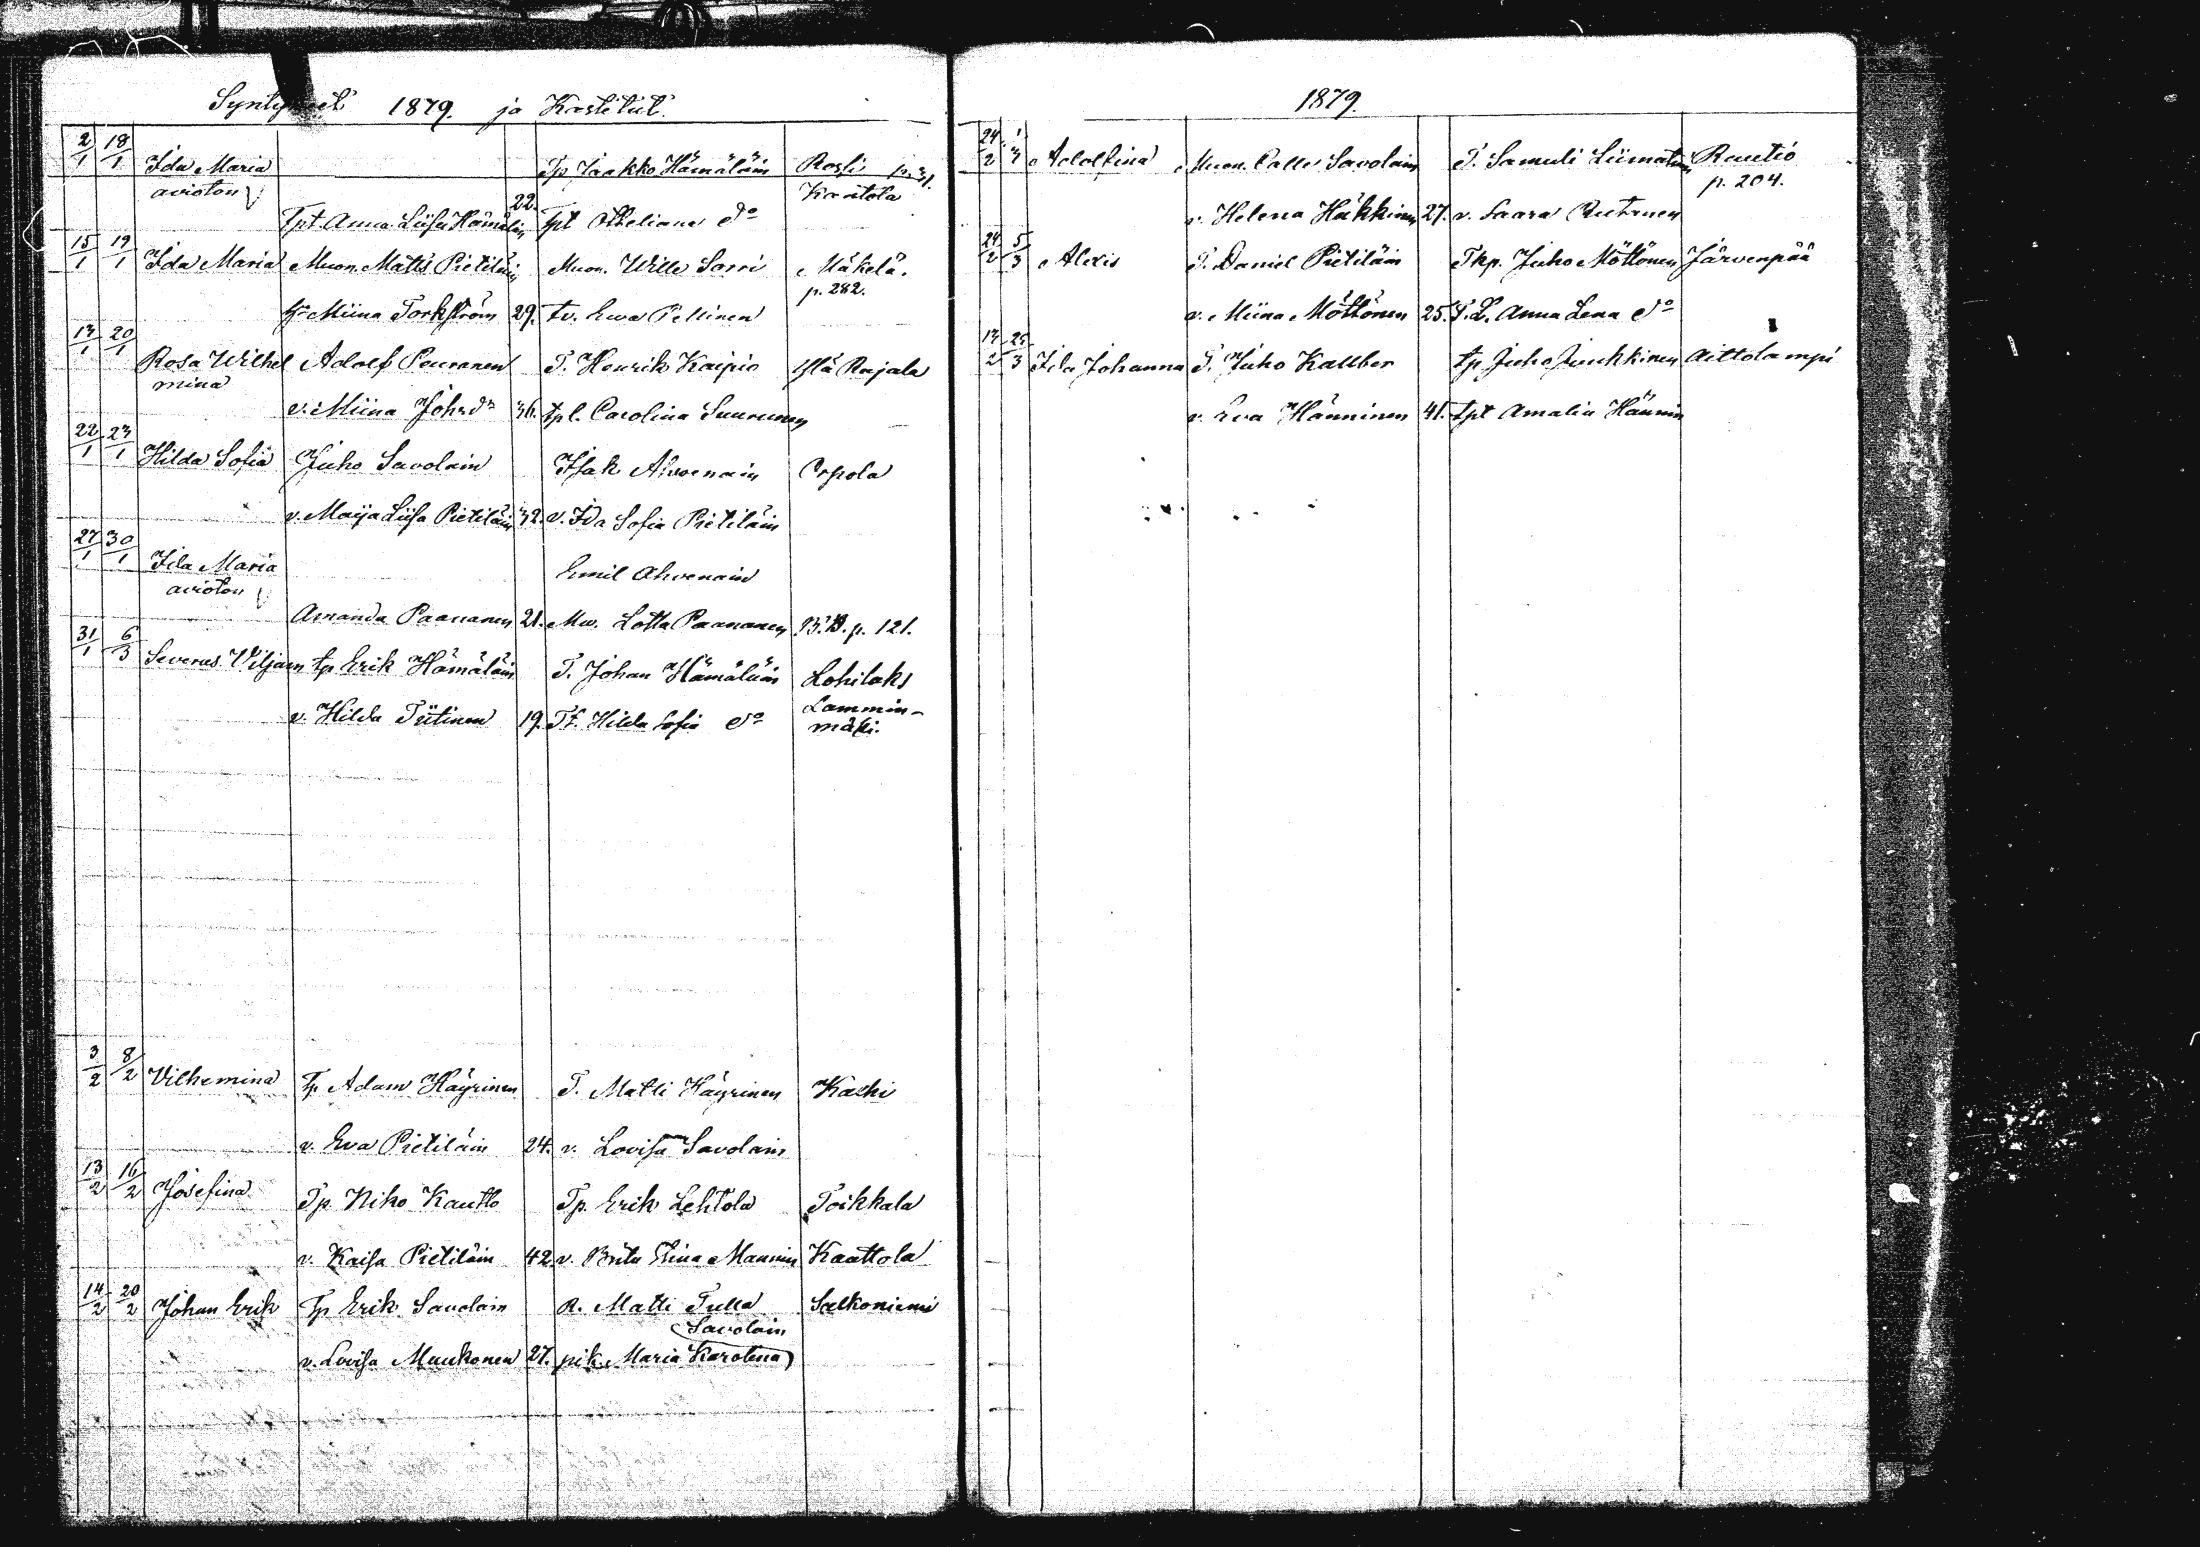 Syntyneet 1879. ja Kastetut.
2/1 18/1 Ida Maria Tp Jaakko Hämäläin Rossi p. 31.
avioton Kaatola
Tpt Anna Liisa Hämäläin 22. Tpt Otteliana do
15/1 19/1 Ida Maria Muon. Matts Pietiläin Muon. Wille Sorri Mäkelä.
p. 282.
hr Miina Torkström 29. tv. Ewa Pellinen
13/1 20/1 Rosa Wilhel Adolf Pouranen T. Henrik Kaipio Ylä Rajala
mina
v. Miina Johsdr 36. tpl. Carolina Suurunen
22/1 23/1 Hilda Sofia Juho Savolain Isak Ahvenain Orpola
v. Maija Liisa Pietiläin 32. v. Ida Sofia Pietiläin
27/1 30/1 Ida Maria Emil Ahvenain
avioton
Amanda Paananen 21. Mw. Lotta Paananen B.B. p. 121.
31/1 6/3 Severus Viljam tp Erik Hämäläin T. Johan Hämäläin Lohilaks
v. Hilda Tiitinen 19. Tt. Hilda Sofia do Lammin-
mäki.
3/2 8/2 Vilhemina Tp Adam Häyrinen T. Matti Häyrinen Kachi
v. Eva Pietiläin 24. v. Lovisa Savolain
13/2 16/2 Josefina Tp Niko Kautto Tp. Erik Lehtola Toikkala
v. Kaisa Pietiläin 42. v. Brita Stina Mannin Kaattola
14/2 20/2 Johan Erik Tp Erik Savolain R. Matti Tulla Salkoniemi
Savolain
v. Lovisa Muukonen 27. pik. Maria Karolina
1879.
24/2 1/3 Adolfina Muon. Calle Savolain T. Samuli Liimatain Rautio
p. 204.
v. Helena Häkkinen 27. v. Saara Rutanen
24/2 5/3 Alexis T. Daniel Pietiläin Tkp. Juho Möttönen Järvenpää
v. Miina Möttönen 25. T. L. Anna Lena do
13/2 25/3 Ida Johanna T. Juho Kallber tp Juho Juukkinen Aittolampi
v. Eva Hänninen 41. tpt Amalia Hännin